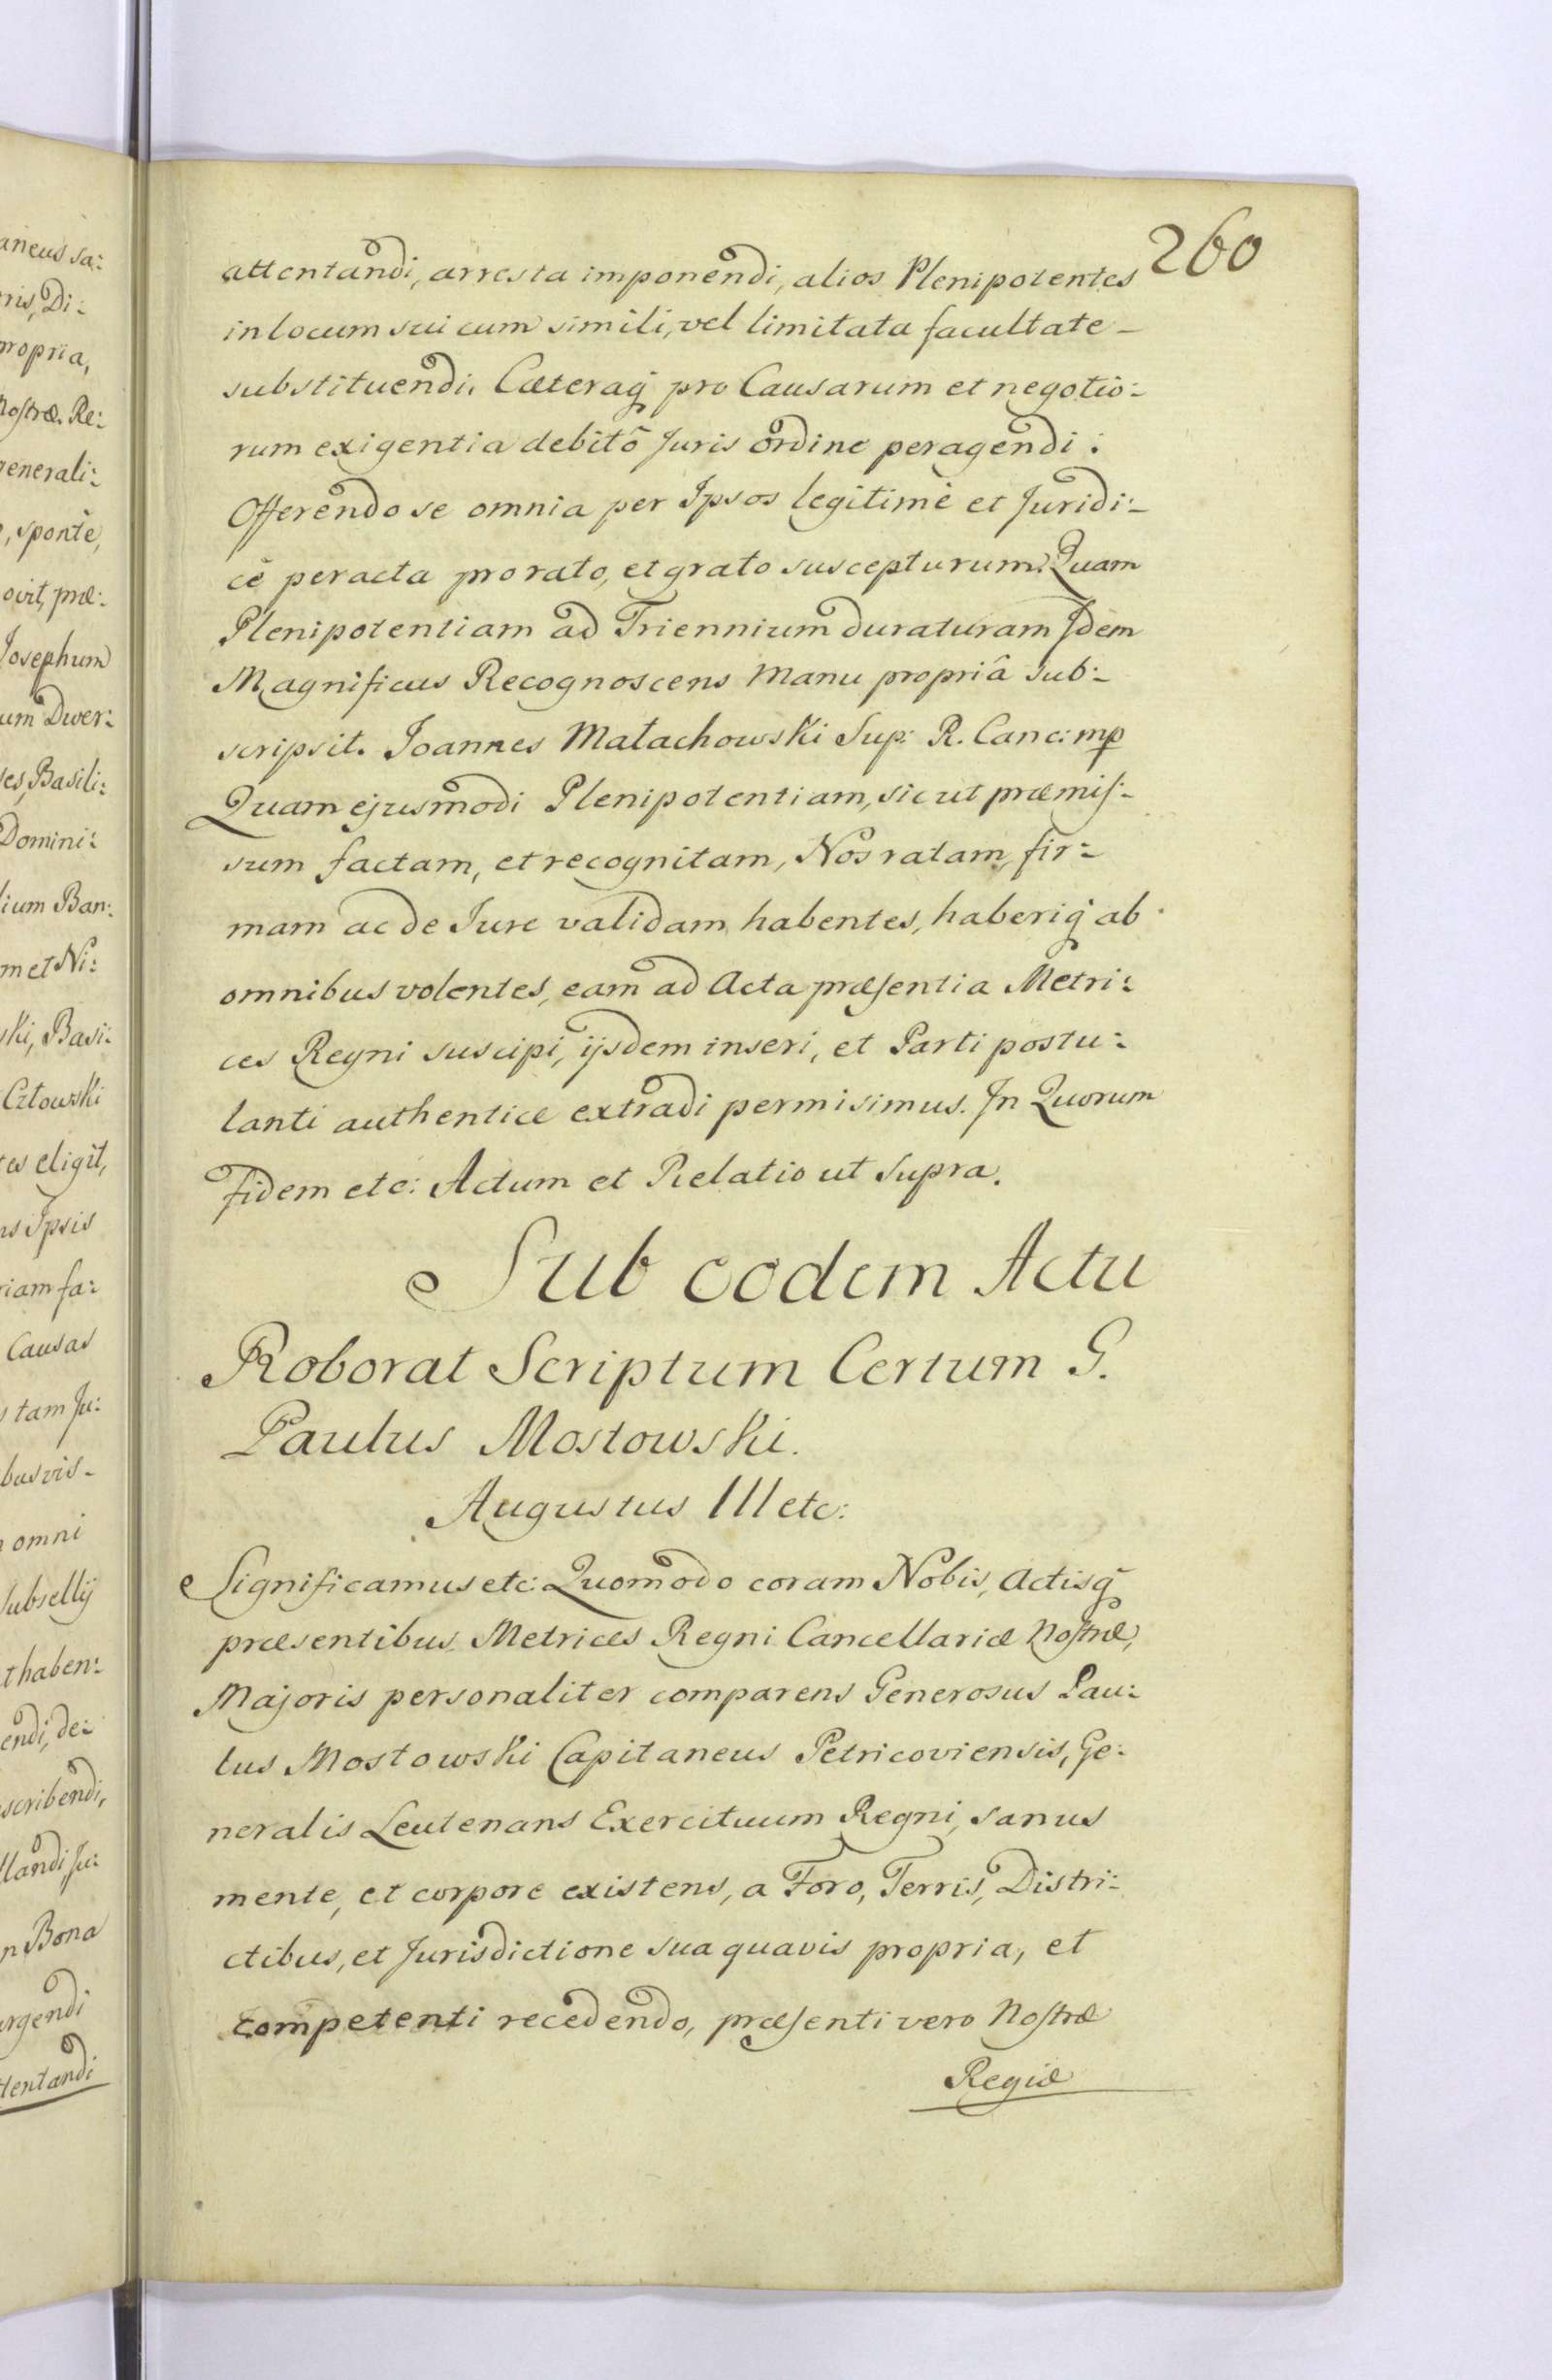 260
attentandi, arresta imponendi, alios Plenipotentes
in locum sui cum simili, vel limitata facultate -
substituendi. Cæteraq̃ pro Causarum et negotio:
rum exigentia debitô Juris ordine peragendi:
Offerendo se omnia per Ipsos legitimè et Juridi:
cè peracta pro rato, et grato suscepturum. Quam
Plenipotentiam ad Triennium duraturam Idem
Magnificus Recognoscens Manu propriâ sub:
scripsit. Joannes Małachowski Sup: R. Canc: mp
Quam ejusmodi Plenipotentiam, sic ut præmis:
sum factam, et recognitam, Nos ratam, fir:
mam ac de Jure validam habentes, haberiq̃ ab
omnibus volentes, eam ad Acta præsentia Metri:
ces Regni suscipi, ijsdem inseri, et Parti postu:
lanti authenticè extradi permisimus. In Quorum
fidem etc: Actum et Relatio ut supra.
Sub eodem Actu
Roborat Scriptum Certum G.
Paulus Mostowski.
Augustus III etc:
Significamus etc: Quomodo coram Nobis, Actisq̃
præsentibus Metrices Regni Cancellariæ Nostræ,
Majoris personaliter comparens Generosus Pau:
lus Mostowski Capitaneus Petricoviensis, Ge:
neralis Leutenans Exercituum Regni, sanus
mente, et corpore existens, a Foro, Terris, Distri:
ctibus, et Jurisdictione sua quavis propria, et
competenti recedendo, præsenti vero Nostræ
Regiæ